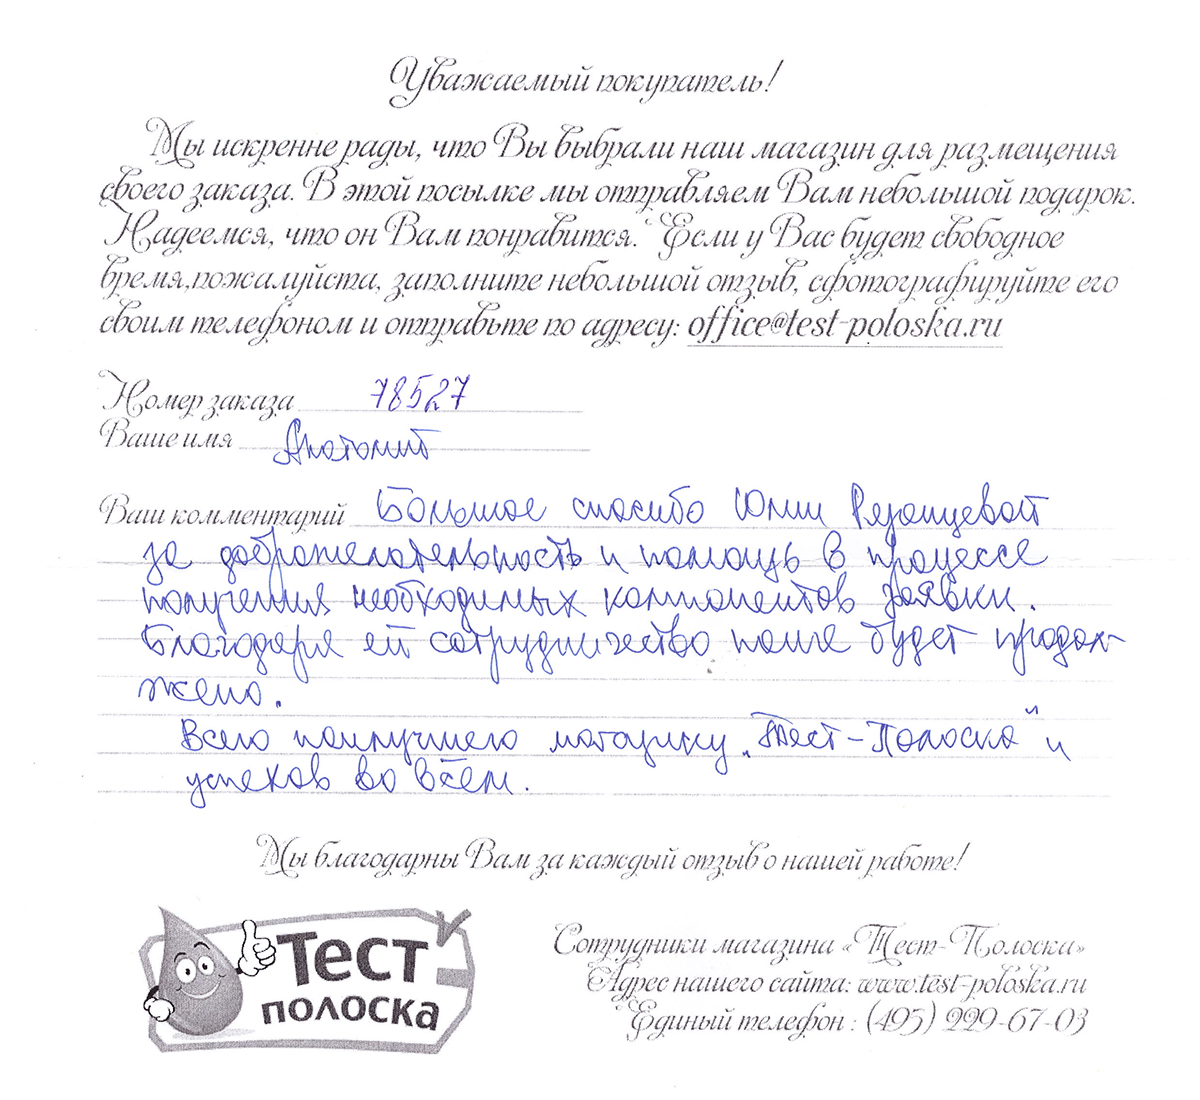 Уважаемый покупатель!
Мы искренне рады, что Вы выбрали наш магазин для размещения
своего заказа. В этой посылке мы отправляем Вам небольшой подарок.
Надеемся, что он Вам понравится. Если у Вас будет свободное
время,пожалуйста, заполните небольшой отзыв, сфотографируйте его
своим телефоном и отправьте по адресу: office@test-poloska.ru
Номер заказа 78527
Ваше имя Анатолий
Ваш комментарий Большое спасибо Юлии Рязанцевой
за доброжелательность и помощь в процессе
получения необходимых компонентов заявки.
Благодаря ей сотрудничество наше будет продол-
жено.
Всего наилучшего магазину „Тест-Полоска" и
успехов во всём.
Мы благодарны Вам за каждый отзыв о нашей работе!
Тест
полоска
Сотрудники магазина «Тест-Полоска»
Адрес нашего сайта: www.test-poloska.ru
Единый телефон : (495) 229-67-03